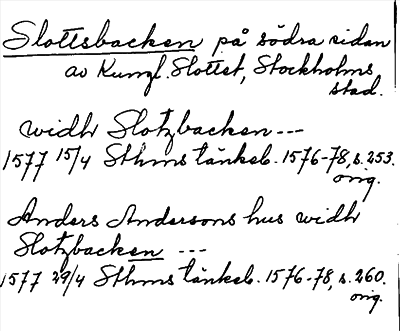 Slottsbacken på södra sidan
av Kungl. Slottet, Stockholms
stad.
widh Slotzbacken ---
1577 15/4 Sthms tänkeb. 1576-78, s. 253.
orig.
Anders Andersons hus widh
Slotzbacken ---
1577 29/4 Sthms tänkeb. 1576-78, s. 260.
orig.